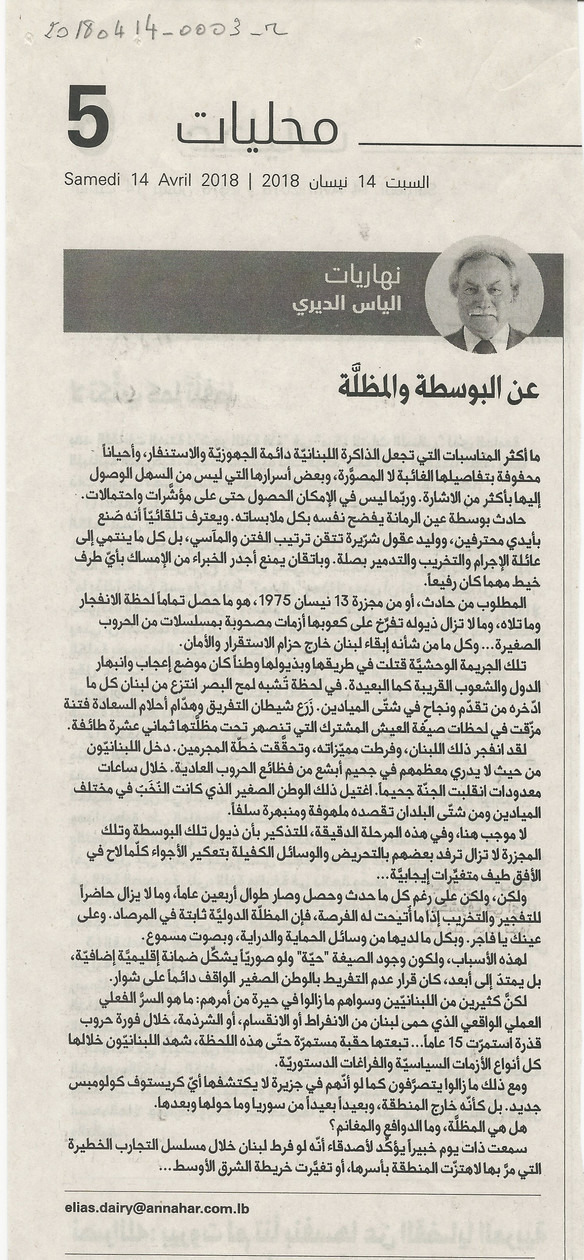 20180414-0003-r
5
محليات
Samedi 14 Avril 2018 | السبت 14 نيسان 2018
نهاريات
الياس الديري
عن البوسطة والمظلَّة
ما أكثر المناسبات التي تجعل الذاكرة اللبنانيّة دائمة الجهوزيّة والاستنفار، وأحياناً
محفوفة بتفاصيلها الغائبة لا المصوَّرة، وبعض أسرارها التي ليس من السهل الوصول
إليها بأكثر من الاشارة. وربّما ليس في الإمكان الحصول حتى على مؤشّرات واحتمالات.
حادث بوسطة عين الرمانة يفضح نفسه بكل ملابساته. ويعترف تلقائيّاً أنه صُنع
بأيدي محترفين، ووليد عقول شرّيرة تتقن ترتيب الفتن والمآسي، بل كل ما ينتمي إلى
عائلة الإجرام والتخريب والتدمير بصلة. وباتقان يمنع أجدر الخبراء من الإمساك بأيّ طرف
خيط مهما كان رفيعاً.
المطلوب من حادث، أو من مجزرة 13 نيسان 1975، هو ما حصل تماماً لحظة الانفجار
وما تلاه، وما لا تزال ذيوله تفرّخ على كعوبها أزمات مصحوبة بمسلسلات من الحروب
الصغيرة... وكل ما من شأنه إبقاء لبنان خارج حزام الاستقرار والأمان.
تلك الجريمة الوحشيَّة قتلت في طريقها وبذيولها وطناً كان موضع إعجاب وانبهار
الدول والشعوب القريبة كما البعيدة. في لحظة تُشبه لمح البصر انتزع من لبنان كل ما
ادّخره من تقدّم ونجاح في شتّى الميادين. زَرَع شيطان التفريق وهدّام أحلام السعادة فتنة
مزّقت في لحظات صيغة العيش المشترك التي تنصهر تحت مظلّتها ثماني عشرة طائفة.
لقد انفجر ذلك اللبنان، وفرطت مميّزاته، وتحقَّقت خطّة المجرمين. دخل اللبنانيّون
من حيث لا يدري معظمهم في جحيم أبشع من فظائع الحروب العادية. خلال ساعات
معدودات انقلبت الجنّة جحيماً. اغتيل ذلك الوطن الصغير الذي كانت النُخَبُ في مختلف
الميادين ومن شتّى البلدان تقصده ملهوفة ومنبهرة سلفاً.
لا موجب هنا، وفي هذه المرحلة الدقيقة، للتذكير بأن ذيول تلك البوسطة وتلك
المجزرة لا تزال ترفد بعضهم بالتحريض والوسائل الكفيلة بتعكير الأجواء كلّما لاح في
الأفق طيف متغيّرات إيجابيَّة...
ولكن، ولكن على رغم كل ما حدث وحصل وصار طوال أربعين عاماً، وما لا يزال حاضراً
للتفجير والتخريب إذا ما أُتيحت له الفرصة، فإن المظلّة الدوليَّة ثابتة في المرصاد. وعلى
عينك يا فاجر. وبكل ما لديها من وسائل الحماية والدراية، وبصوت مسموع.
لهذه الأسباب، ولكون وجود الصيغة "حيّة" ولو صوريّاً يشكِّل ضمانة إقليميَّة إضافيّة،
بل يمتدَ إلى أبعد، كان قرار عدم التفريط بالوطن الصغير الواقف دائماً على شوار.
لكنَّ كثيرين من اللبنانيّين وسواهم ما زالوا في حيرة من أمرهم: ما هو السرُّ الفعلي
العملي الواقعي الذي حمى لبنان من الانفراط أو الانقسام، أو الشرذمة، خلال فورة حروب
قذرة استمرّت 15 عاماً... تبعتها حقبة مستمرّة حتّى هذه اللحظة، شهد اللبنانيّون خلالها
كل أنواع الأزمات السياسيّة والفراغات الدستوريّة.
ومع ذلك ما زالوا يتصرَّفون كما لو أنّهم في جزيرة لا يكتشفها أيّ كريستوف كولومبس
جديد. بل كأنّه خارج المنطقة، وبعيداً بعيداً من سوريا وما حولها وبعدها.
هل هي المظلَّة، وما الدوافع والمغانم؟
سمعت ذات يوم خبيراً يؤكّد لأصدقاء أنّه لو فرط لبنان خلال مسلسل التجارب الخطيرة
التي مرَّ بها لاهتزّت المنطقة بأسرها، أو تغيَّرت خريطة الشرق الأوسط...
elias.dairy@annahar.com.lb